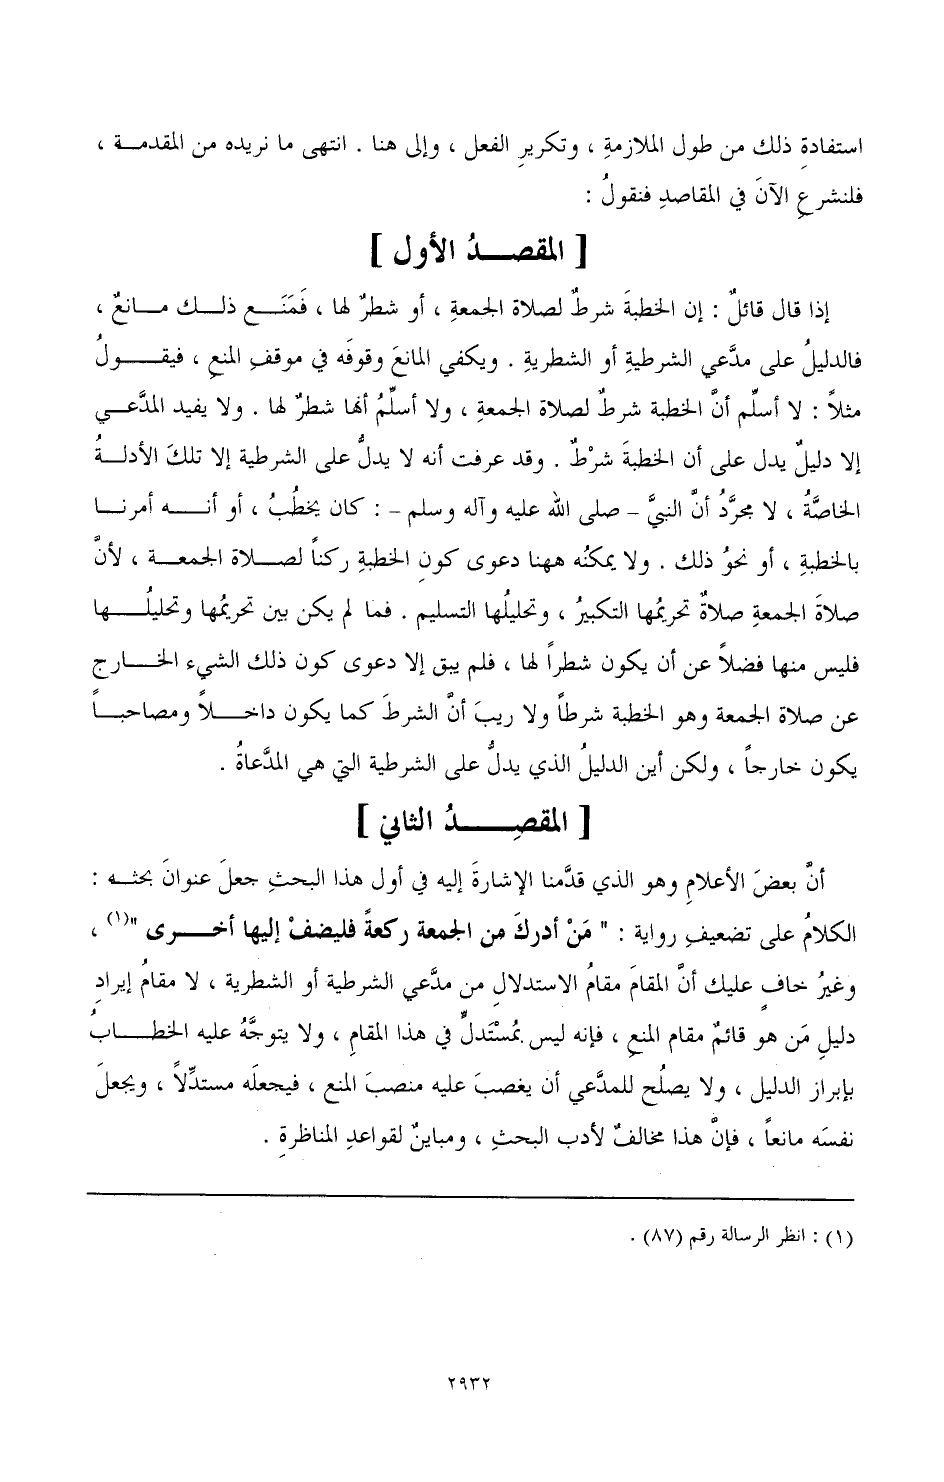 استفادةِ ذلك من طول الملازمةِ ، وتكريرِ الفعل ، وإلى هنا . انتهى ما نريده من المقدمة ،
فلنشرعِ الآنَ في المقاصدِ فنقولُ :
[ المقصدُ الأول ]
إذا قال قائلٌ : إن الخطبةَ شرطٌ لصلاة الجمعةِ ، أو شطرٌ لها ، فَمَنَع ذلك مانعٌ ،
فالدليلُ على مدَّعي الشرطيةِ أو الشطريةِ . ويكفي المانعَ وقوفَه في موقفِ المنعِ ، فيقولُ
مثلاً : لا أسلِّم أنَّ الخطبة شرطٌ لصلاة الجمعةِ ، ولا أسلِّمُ أنها شطرٌ لها . ولا يفيد المدَّعي
إلا دليلٌ يدل على أن الخطبةَ شرْطٌ . وقد عرفت أنه لا يدلُّ على الشرطية إلا تلكَ الأدلةُ
الخاصَّةُ ، لا مجرَّدُ أنَّ النبيَّ - صلى الله عليه وآله وسلم - : كان يخطُبُ ، أو أنه أمرنا
بالخطبةِ ، أو نحوُ ذلك . ولا يمكنُه ههنا دعوى كونِ الخطبةِ ركناً لصلاة الجمعة ، لأنَّ
صلاةَ الجمعةِ صلاةٌ تحريمُها التكبيرُ ، وتحليلُها التسليم . فما لم يكن بين تحريمُها وتحليلُها
فليس منها فضلاً عن أن يكون شطراً لها ، فلم يبق إلا دعوى كون ذلك الشيء الخارج
عن صلاة الجمعة وهو الخطبة شرطاً ولا ريبَ أنَّ الشرطَ كما يكون داخلاً ومصاحباً
يكون خارجاً ، ولكن أين الدليلُ الذي يدلُّ على الشرطية التي هي المدَّعاةُ .
[ المقصِدُ الثاني ]
أنَّ بعضَ الأعلامِ وهو الذي قدَّمنا الإشارةَ إليه في أول هذا البحثِ جعلَ عنوانَ بحثه :
الكلامُ على تضعيفِ رواية : " مَنْ أدركَ من الجمعة ركعةً فليضفْ إليها أخرى "(١) ،
وغيرُ خافٍ عليك أنَّ المقامَ مقامُ الاستدلالِ من مدَّعي الشرطية أو الشطرية ، لا مقامُ إيراد
دليلِ مَن هو قائمٌ مقام المنعِ ، فإنه ليس بمُسْتَدلٍّ في هذا المقامِ ، ولا يتوجَّهُ عليه الخطابُ
بإبراز الدليل ، ولا يصلُح للمدَّعي أن يغصبَ عليه منصبَ المنع ، فيجعلَه مستدِّلاً ، ويجعلَ
نفسَه مانعاً ، فإنَّ هذا مخالفٌ لأدب البحثِ ، ومباينٌ لقواعدِ المناظرةِ .
(١) : انظر الرسالة رقم (٨٧) .
٢٩٣٢